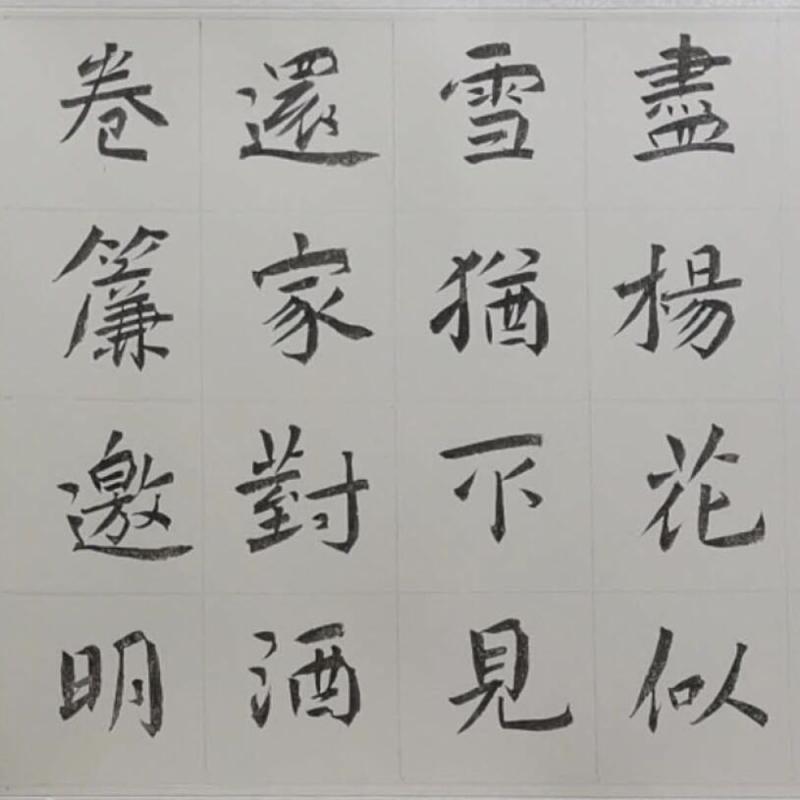 盡楊花似
雪猶不見
還家對酒
卷簾邀明